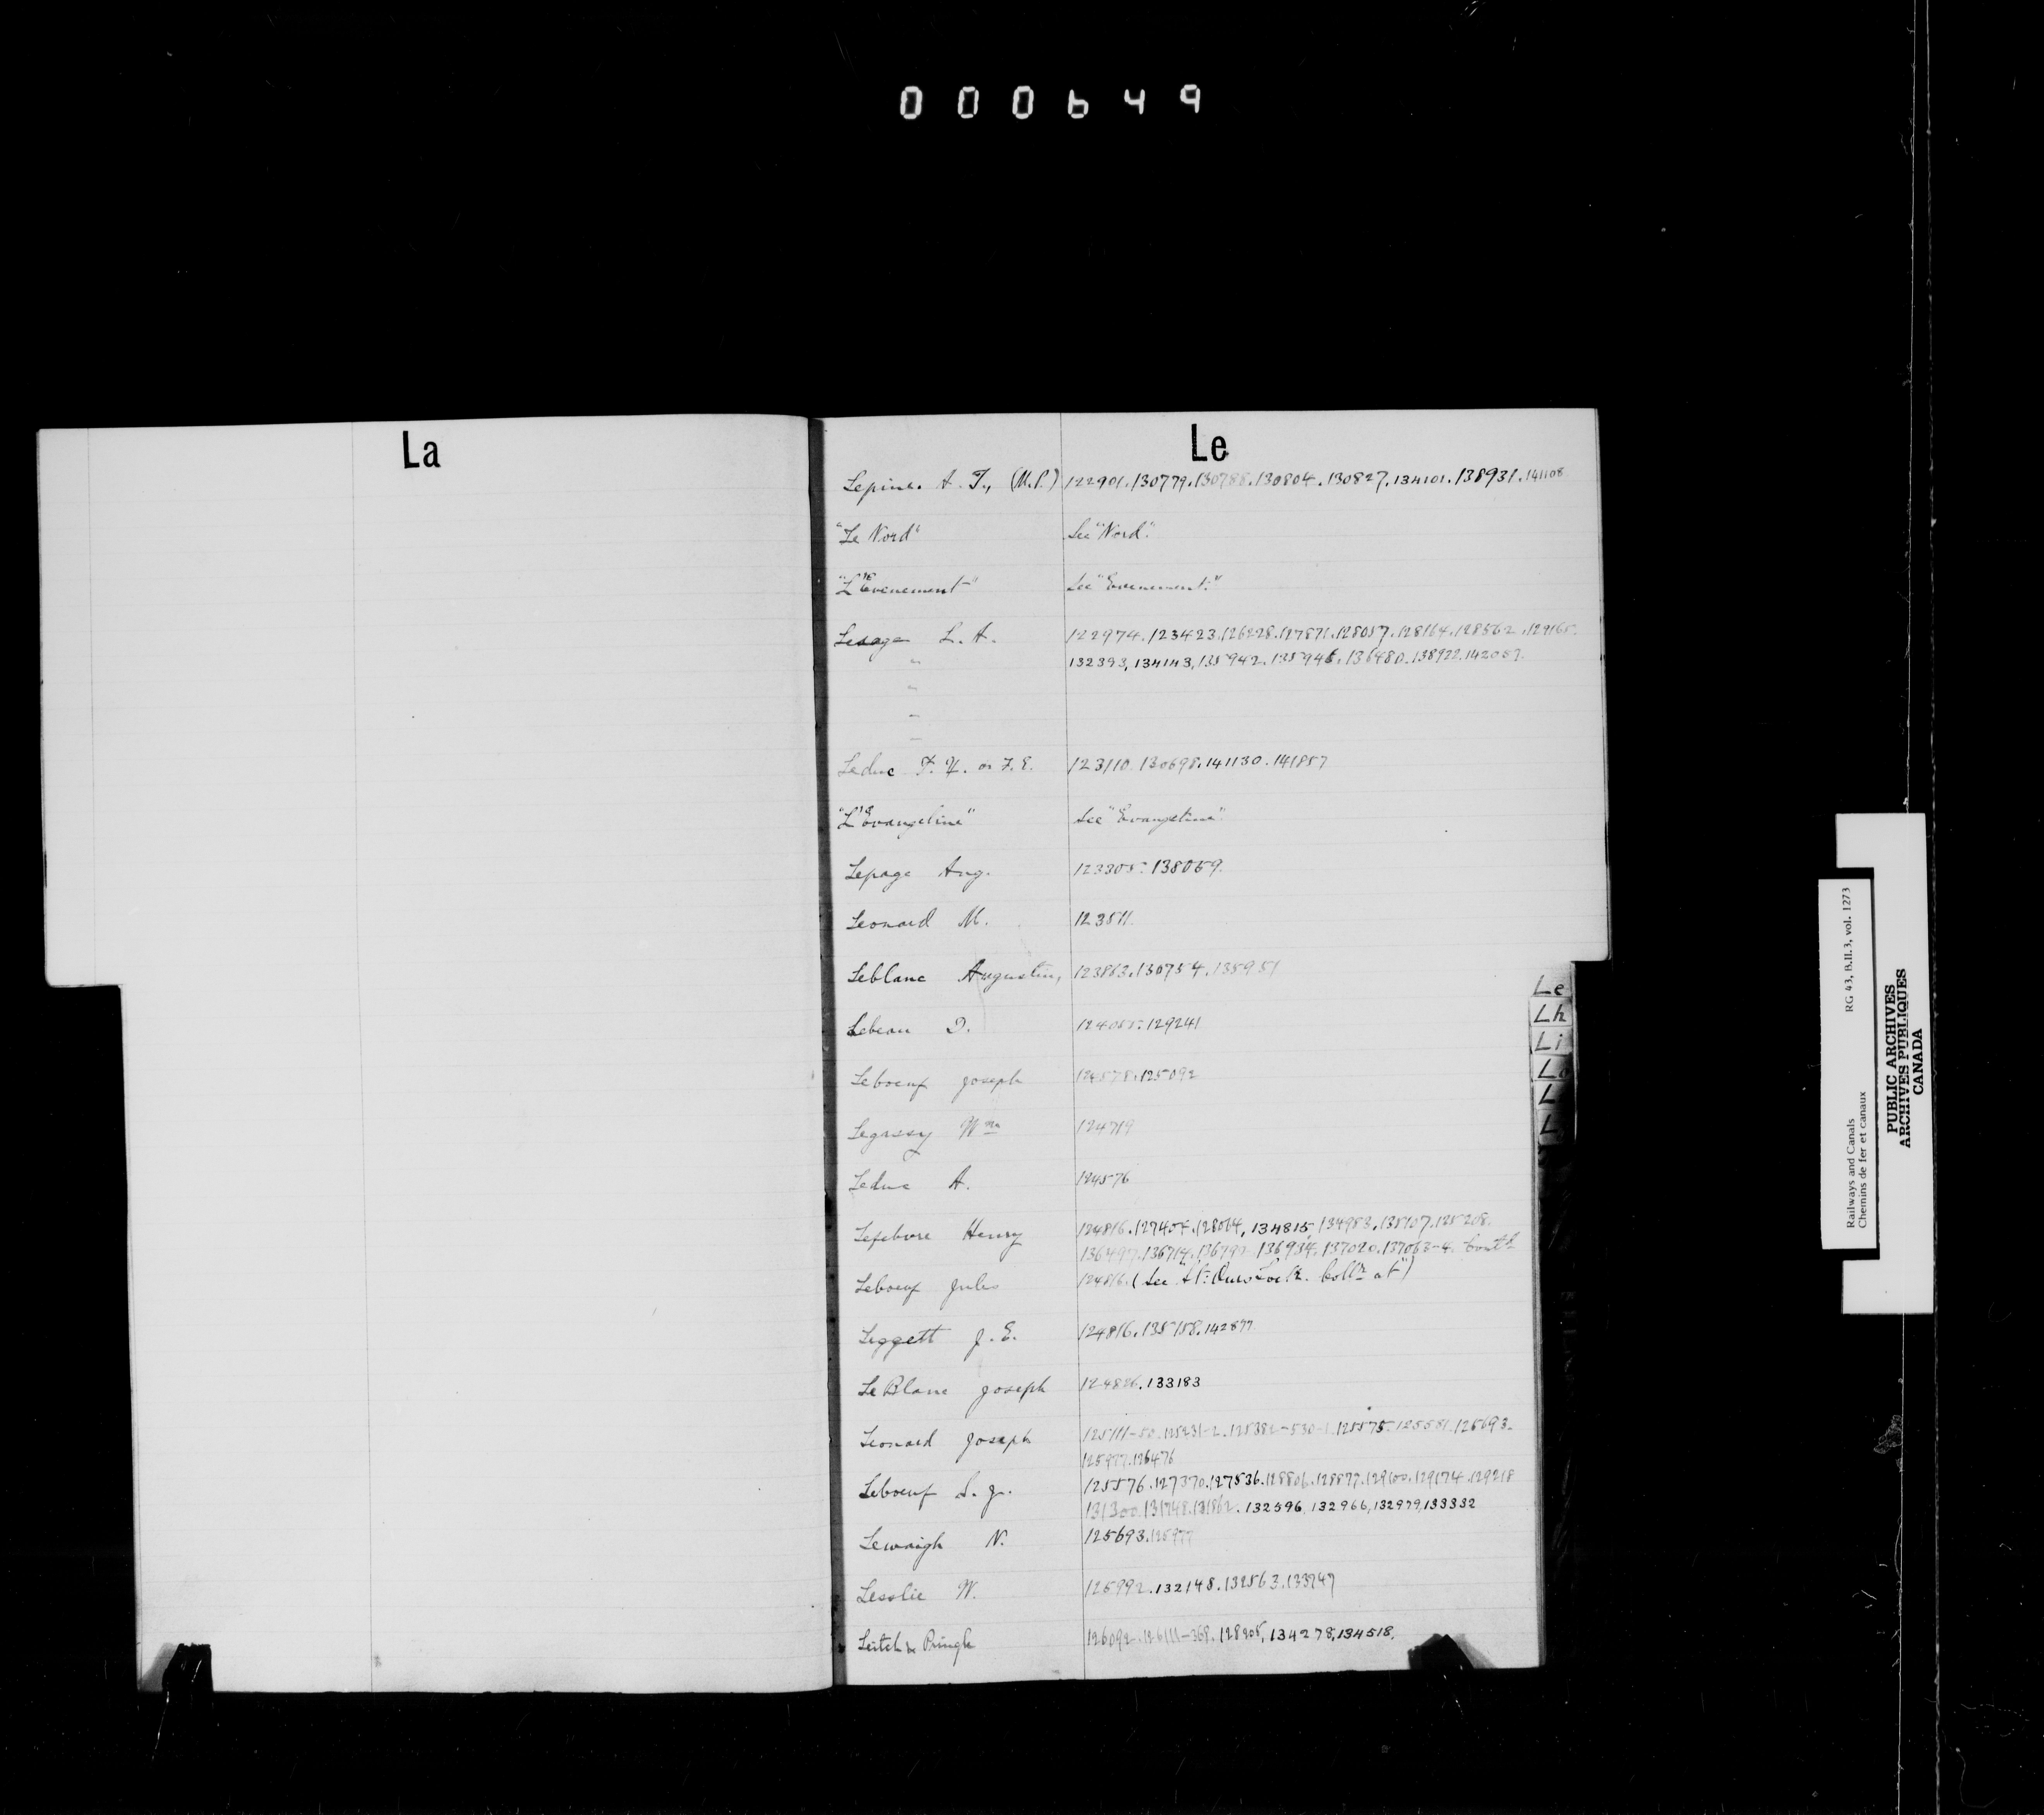 000649
La
Le
Lepine. A. T., (M.P.) 122901.130779.130788.130804.130827.134101.138931.141108
"Le Nord" See "Nord".
"L'Evenement" See "Evenement."
Lesage L. A. 122974.123423.126228.127871.128057.128164.128562.129165.
" 132393,134143,135942.135946.136480.138922.142087.
"
"
"
Leduc F. X. or F. E. 123110.130698.141130.141857
"L'Evangeline" See "Evangeline".
Lepage Aug. 123305.138059.
Leonard M. 123511.
Leblanc Augustin, 123863.130754.135951
Lebeau D. 129241
Leboeuf Joseph 124578.125092
Legassy Wm 124719
Leduc A. 124576
Lefebvre Henry 124816.127404.128064,134815,134953.135107.135208.
136497.136714.136790.136934.137020.137063-4. Contd
Leboeuf Jules 124816. (See St: Ours Lock. Collr at")
Leggett J. E. 124816.135158.142877
Le Blanc Joseph 124826.133183
Leonard Joseph 125111-50.125231-2.125382-530-1.125575.125581.125693.
125977.126476
Leboeuf L. J. 125576.127370.127536.128806.128877.129100.129174.129218
131300.131748.131862.132596,132966,132979,133332
Lewaigh N. 125693.125977
Lesslie W. 125992.132148.132563.133747
Leitch & Pringle 126092.126111-368.128205,134278,134518.
Le
Lh
Li
Lo
L
L
Railways and Canals RG 43, B.II.3, vol. 1273
Chemins de fer et canaux
PUBLIC ARCHIVES
ARCHIVES PUBLIQUES
CANADA